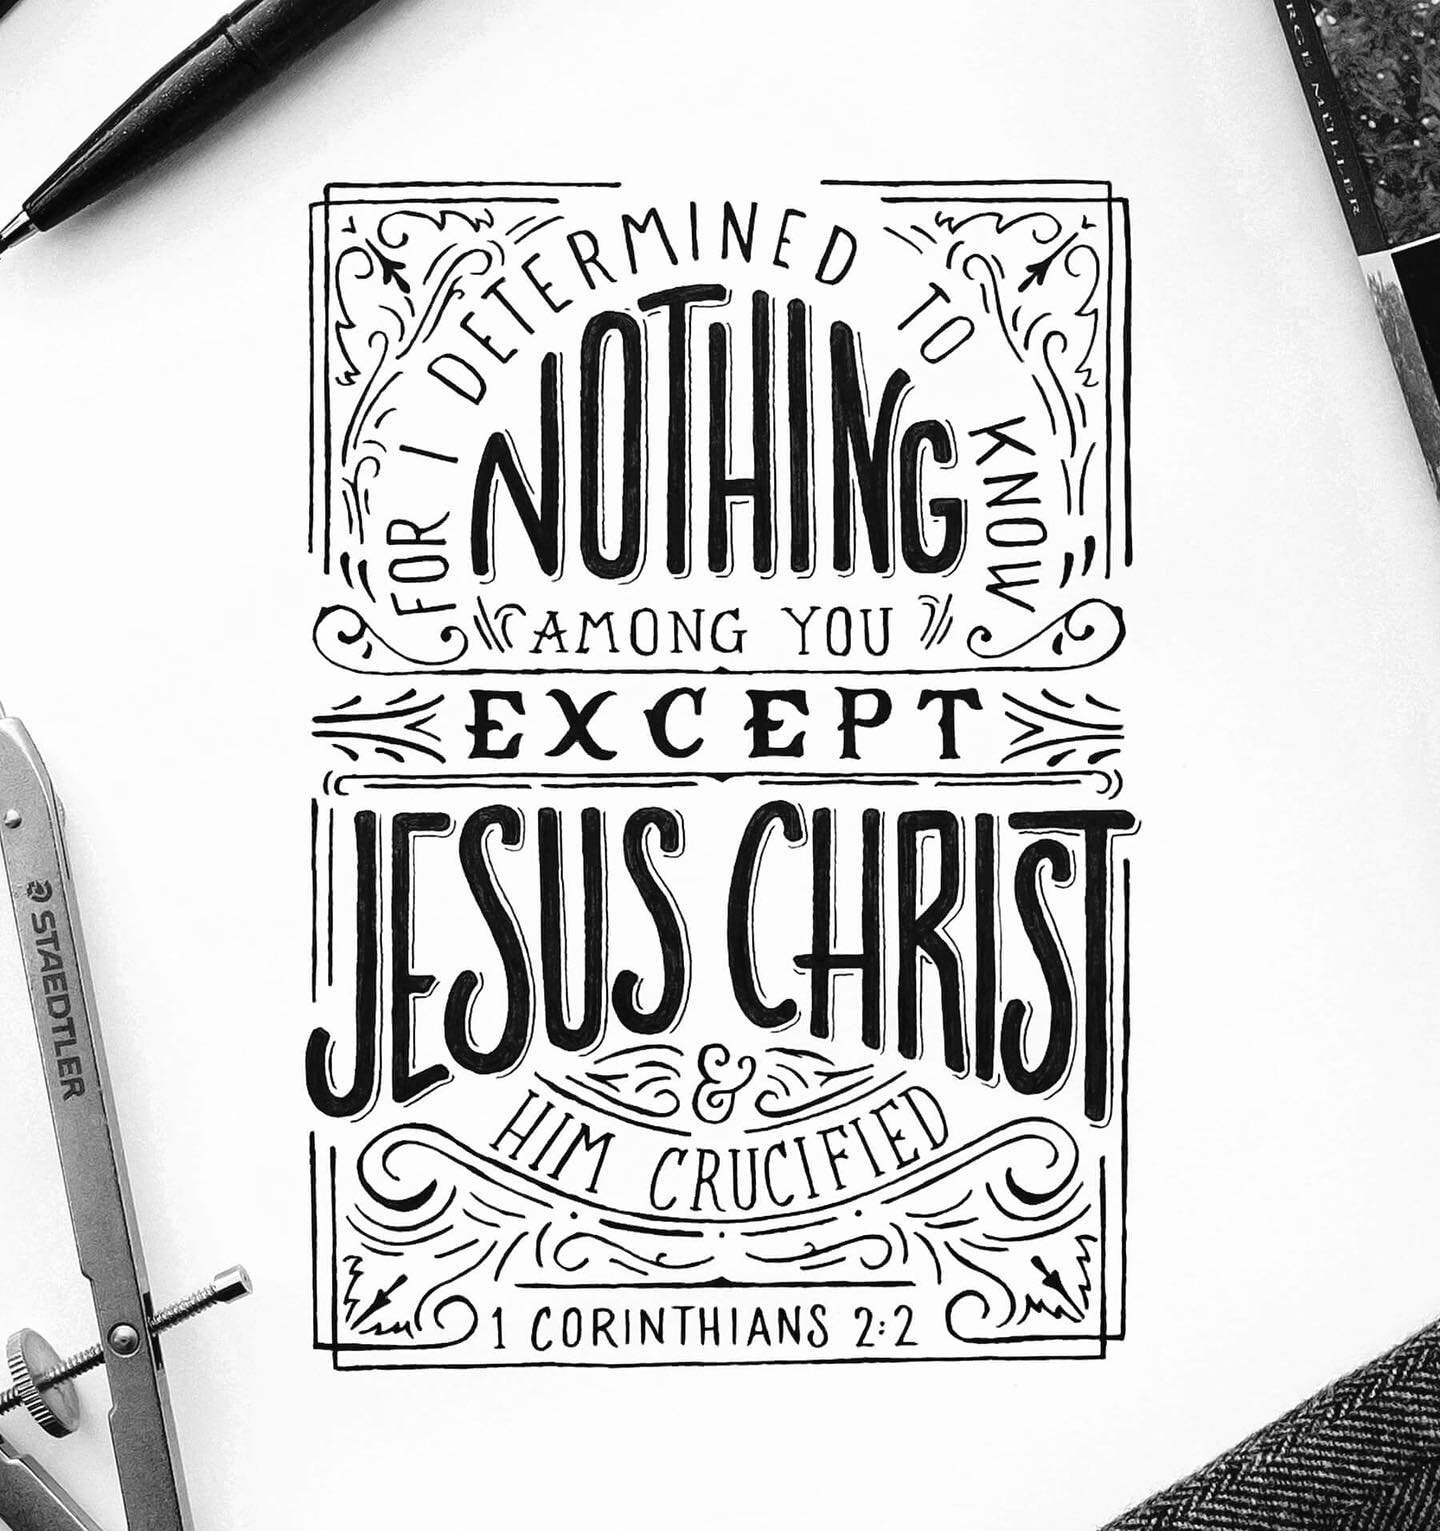 FOR I DETERMINED TO KNOW
NOTHING
AMONG YOU
EXCEPT
JESUS CHRIST
&
HIM CRUCIFIED
1 CORINTHIANS 2:2
STAEDTLER
RGE MÜLLER